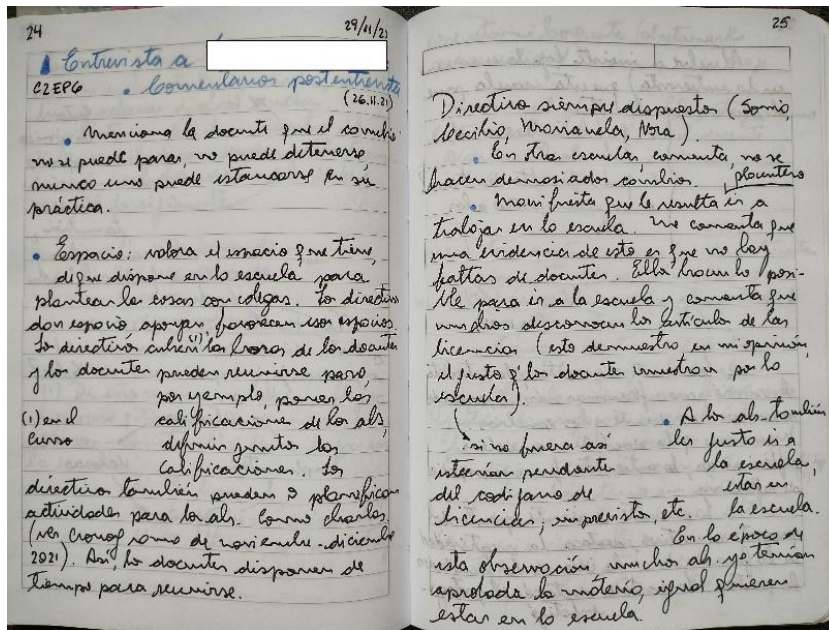 24
29/11/21
Entrevista a
C2EP6
• Comentarios post entrevista
(26.11.21)
• Menciona la docente que el cambio
no se puede parar, no puede detenerse,
nunca uno puede estancarse en su
práctica.
• Espacio: valora el espacio que tiene,
del que dispone en la escuela para
plantear las cosas con colegas. Los directivos
dan espacio, apoyan, favorecen esos espacios.
Los directivos cubren (1) las horas de los docentes
y los docentes pueden reunirse para,
por ejemplo, poner las
(1) en el calificaciones de los als,
curso definir juntos las
calificaciones. Los
directivos también pueden planificar
actividades para los als. como charlas.
(ver cronograma de noviembre-diciembre
2021). Así, los docentes disponen de
tiempo para reunirse.
25
Directivos siempre dispuestos (Sonia,
Cecilia, Marianela, Nora).
• En otras escuelas, comenta, no se
hacen demasiados cambios.
placentero
• Manifiesta que le resulta ir a
trabajar en la escuela. Me comenta que
una evidencia de esto es que no hay
faltas de docentes. Ellas hacen lo posi-
ble para ir a la escuela y comenta que
muchos desconocen los artículos de las
licencias (esto demuestra en mi opinión,
el gusto q' los docentes muestran por la
escuela).
si no fuera así
estarían pendientes
del código de
licencias, imprevistos, etc.
• A los als. también
les gusta ir a
la escuela,
estar en
la escuela.
En la época de
esta observación muchos als. ya tenían
aprobada la materia, igual quieren
estar en la escuela.